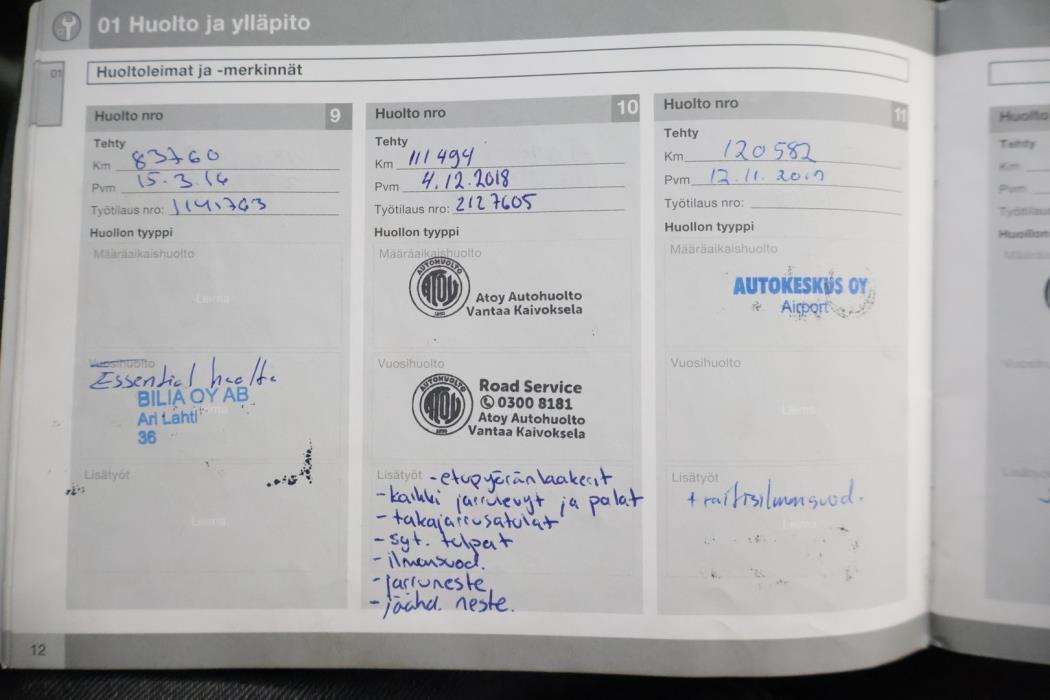 01 Huolto ja ylläpito
01
Huoltoleimat ja -merkinnät
Huolto nro 9
Tehty
Km 83760
Pvm 15.3.16
Työtilaus nro: 1141763
Huollon tyyppi
Määräaikaishuolto
Leima
Vuosihuolto
Essential huolto
BILIA OY AB
Ari Lahti
36
Lisätyöt
Leima
Huolto nro 10
Tehty
Km 111494
Pvm 4.12.2018
Työtilaus nro: 2127605
Huollon tyyppi
Määräaikaishuolto
AUTOHUOLTO
ATOY
Atoy Autohuolto
Vantaa Kaivoksela
Vuosihuolto
AUTOHUOLTO
ATOY
Road Service
0300 8181
Atoy Autohuolto
Vantaa Kaivoksela
Lisätyöt - etupyöränlaakerit
- kaikki jarrulevyt ja palat
- takajarrusatulat
- syt. tulpat
- ilmansuod.
- jarruneste
- jäähd. neste.
Huolto nro 11
Tehty
Km 120582
Pvm 12.11.2019
Työtilaus nro:
Huollon tyyppi
Määräaikaishuolto
AUTOKESKUS OY
Airport
Vuosihuolto
Leima
Lisätyöt
+ raitisilmansuod.
Leima
12
Huolto
Tehty
Km
Pvm